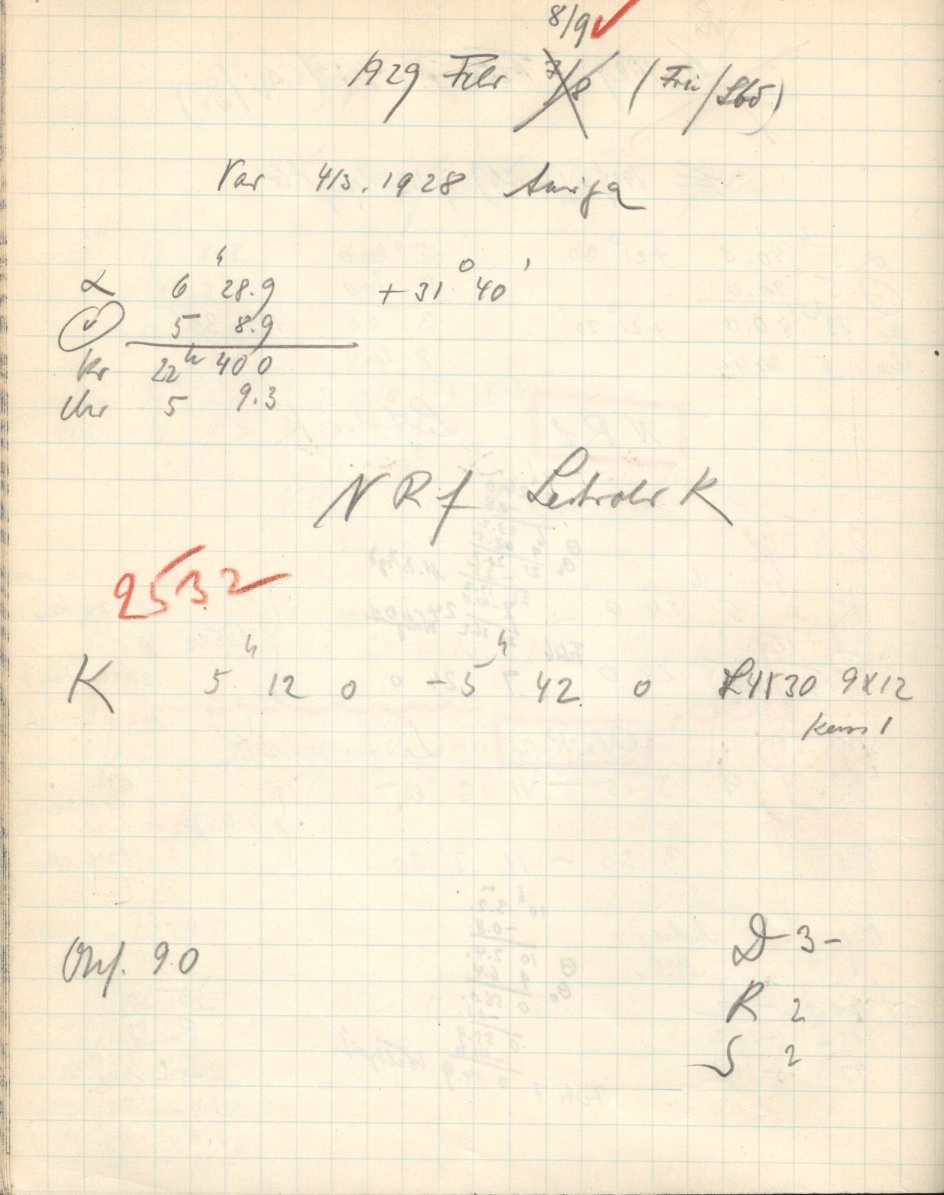 8/9 ✓
1929 Febr 7/8 (Fri/Sbd)
Var 413.1928 Auriga
α 6 h 28.9 + 31 ° 40 '
5 8.9
Kr 22 h 40 0
Uhr 5 9.3
N R f K
2532
K 5 h 12 0 – 5 h 42 0 L4530 9x12
Kass 1
Okf. 9.0
D 3 –
R 2
S 2